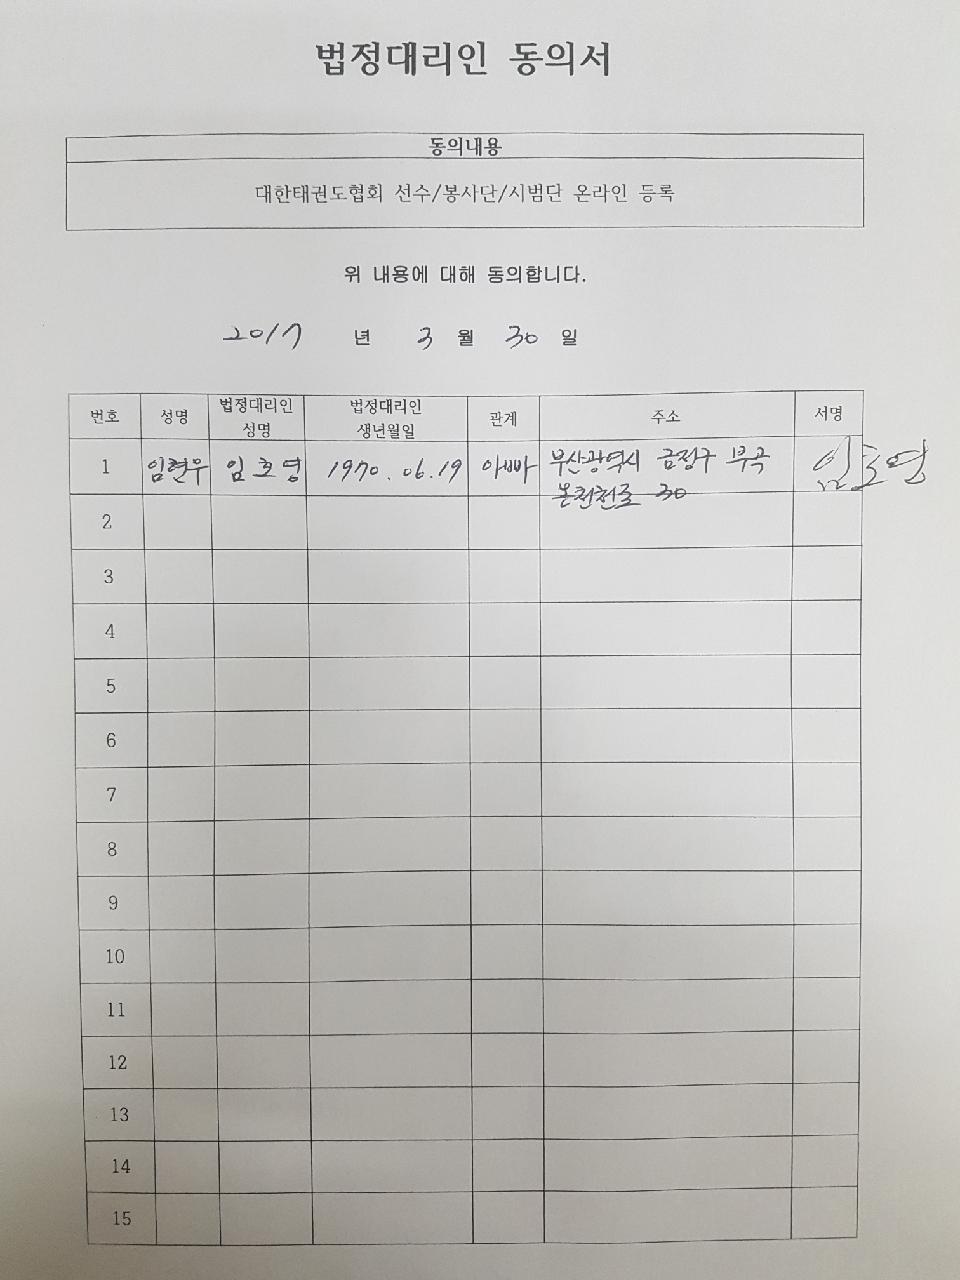 법정대리인 동의서
동의내용
대한태권도협회 선수/봉사단/시범단 온라인 등록
위 내용에 대해 동의합니다.
2017 년 3 월 30 일
번호 성명 법정대리인 성명 법정대리인 생년월일 관계 주소 서명
1 임현우 임호영 1970.06.19 아빠 부산광역시 금정구 부곡 임호영
온천천로 30
2
3
4
5
6
7
8
9
10
11
12
13
14
15